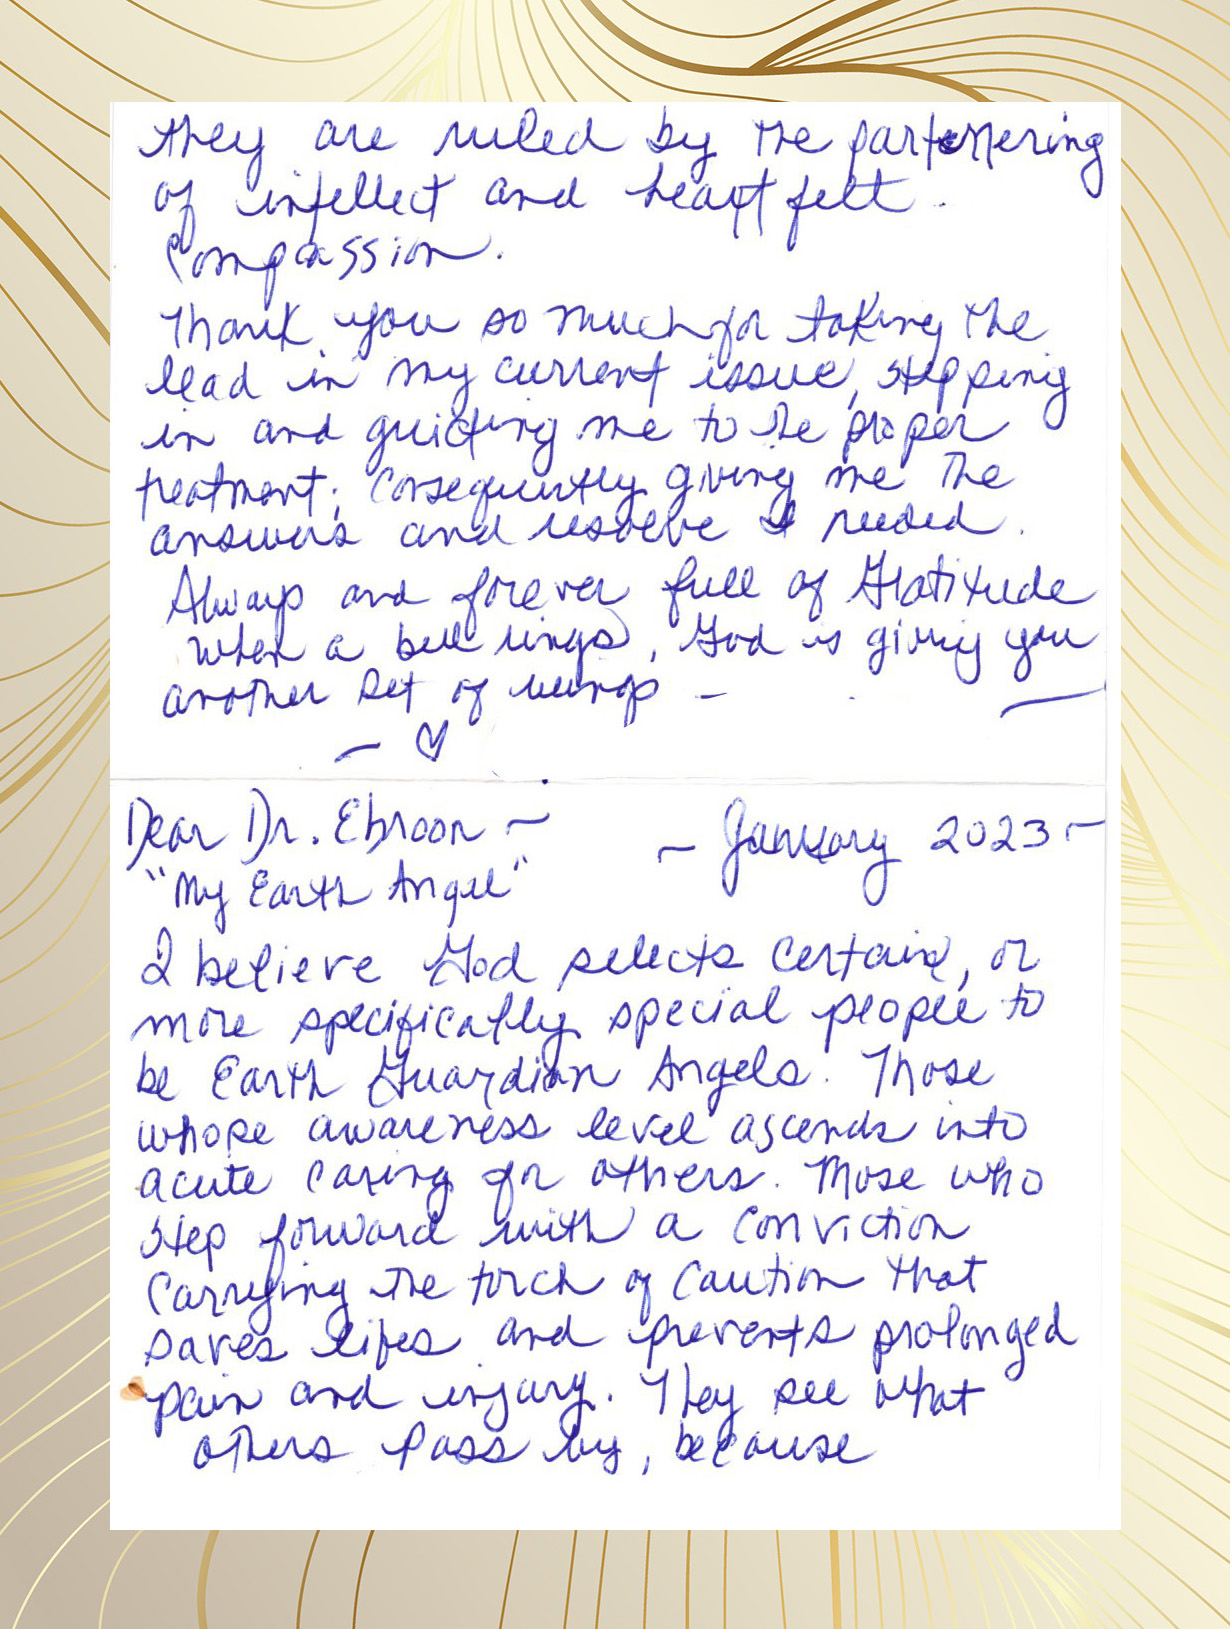 they are ruled by the partnering
of intellect and heart felt.
Compassion.
Thank you so much for taking the
lead in my current issue, stepping
in and guiding me to the proper
treatment; Consequently giving me the
answers and resolve I needed.
Always and forever full of Gratitude
When a bell rings, God is giving you
another set of wings –
– ♡
Dear Dr. Ebroon ~
~ January 2023 ~
"My Earth Angel"
I believe God selects certain, or
more specifically special people to
be Earth Guardian Angels. Those
whose awareness level ascends into
acute caring for others. Those who
step forward with a conviction
Carrying the torch of Caution that
saves lifes and prevents prolonged
pain and injury. They see what
others pass by, because